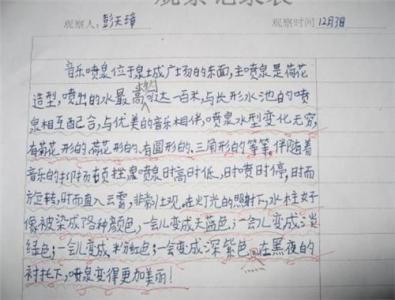 观察记录表
观察人：彭天璋 观察时间 12月3日
音乐喷泉位于泉城广场的东面，主喷泉是荷花
造型，喷出的水最高可达一百米，与长形水池的喷
泉相互配合，与优美的音乐相伴，喷泉水型变化无穷，
有菊花形的、荷花形的、有圆形的、三角形的等等。伴随着
音乐的抑扬顿挫喷泉时高时低，时喷时停，时而
方旋转，时而直入云霄，非常壮观。在灯光的照射下，水柱好
像被染成了各种颜色，一会儿变成天蓝色；一会儿变成淡
绿色；一会儿变成粉红色；一会变成深紫色。在黑夜的
衬托下，喷泉变得更加美丽！